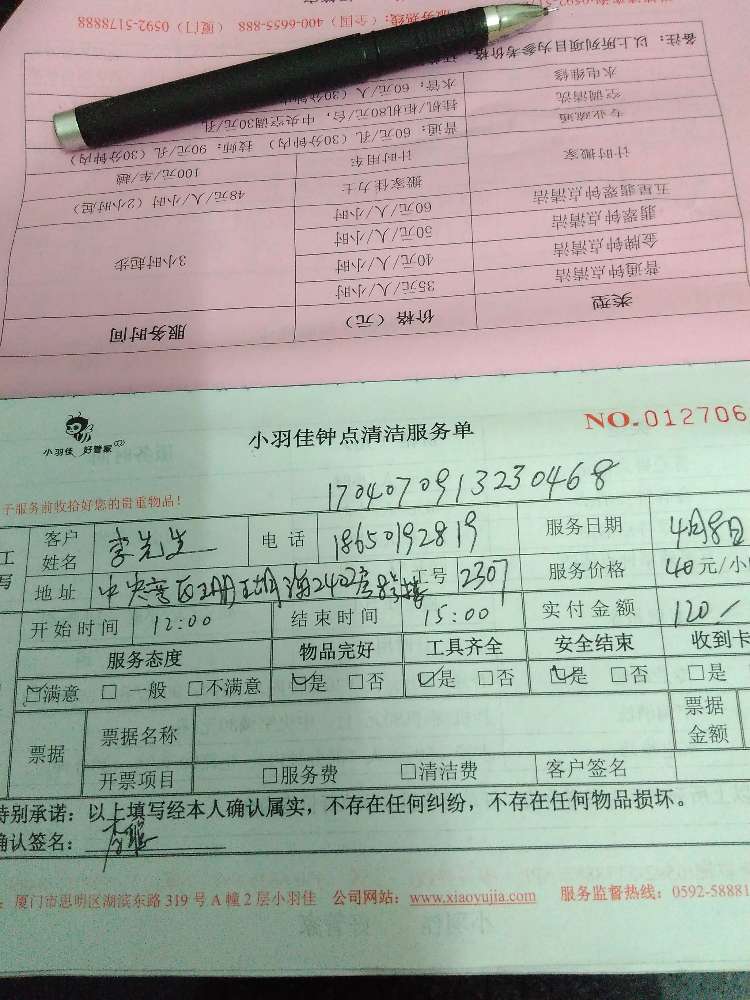 服务热线：（全国）400-6655-888 （厦门）0592-5178888
备注：以上所列项目为参考价格；
水电维修 水管：60元/人（30分钟内）
空调清洗 挂机/柜机80元/台，中央空调30元/孔
专业疏通 普通：60元/孔（30分钟内） 技师：90元/孔（30分钟内）
计时搬家 计时用车 100元/车/趟
搬家佳力士 48元/人/小时（2小时起）
五星翡翠钟点清洁 60元/人/小时 3小时起步
翡翠钟点清洁 50元/人/小时
金牌钟点清洁 40元/人/小时
普通钟点清洁 35元/人/小时
类型 价格（元） 服务时间
小羽佳 好管家
小羽佳钟点清洁服务单
NO.012706
于服务前收拾好您的贵重物品！
1704070913230468
客户姓名 李先生 电话 18650192819 服务日期 4月8日
地址 中央 2402房 工号 2307 服务价格 40元/小
开始时间 12:00 结束时间 15:00 实付金额 120/
服务态度 物品完好 工具齐全 安全结束 收到卡
☑满意 □一般 □不满意 ☑是 □否 ☑是 □否 ☑是 □否 □是
票据 票据名称 票据金额
开票项目 □服务费 □清洁费 客户签名
特别承诺：以上填写经本人确认属实，不存在任何纠纷，不存在任何物品损坏。
确认签名：
：厦门市思明区湖滨东路319号A幢2层小羽佳 公司网站：www.xiaoyujia.com 服务监督热线：0592-58881